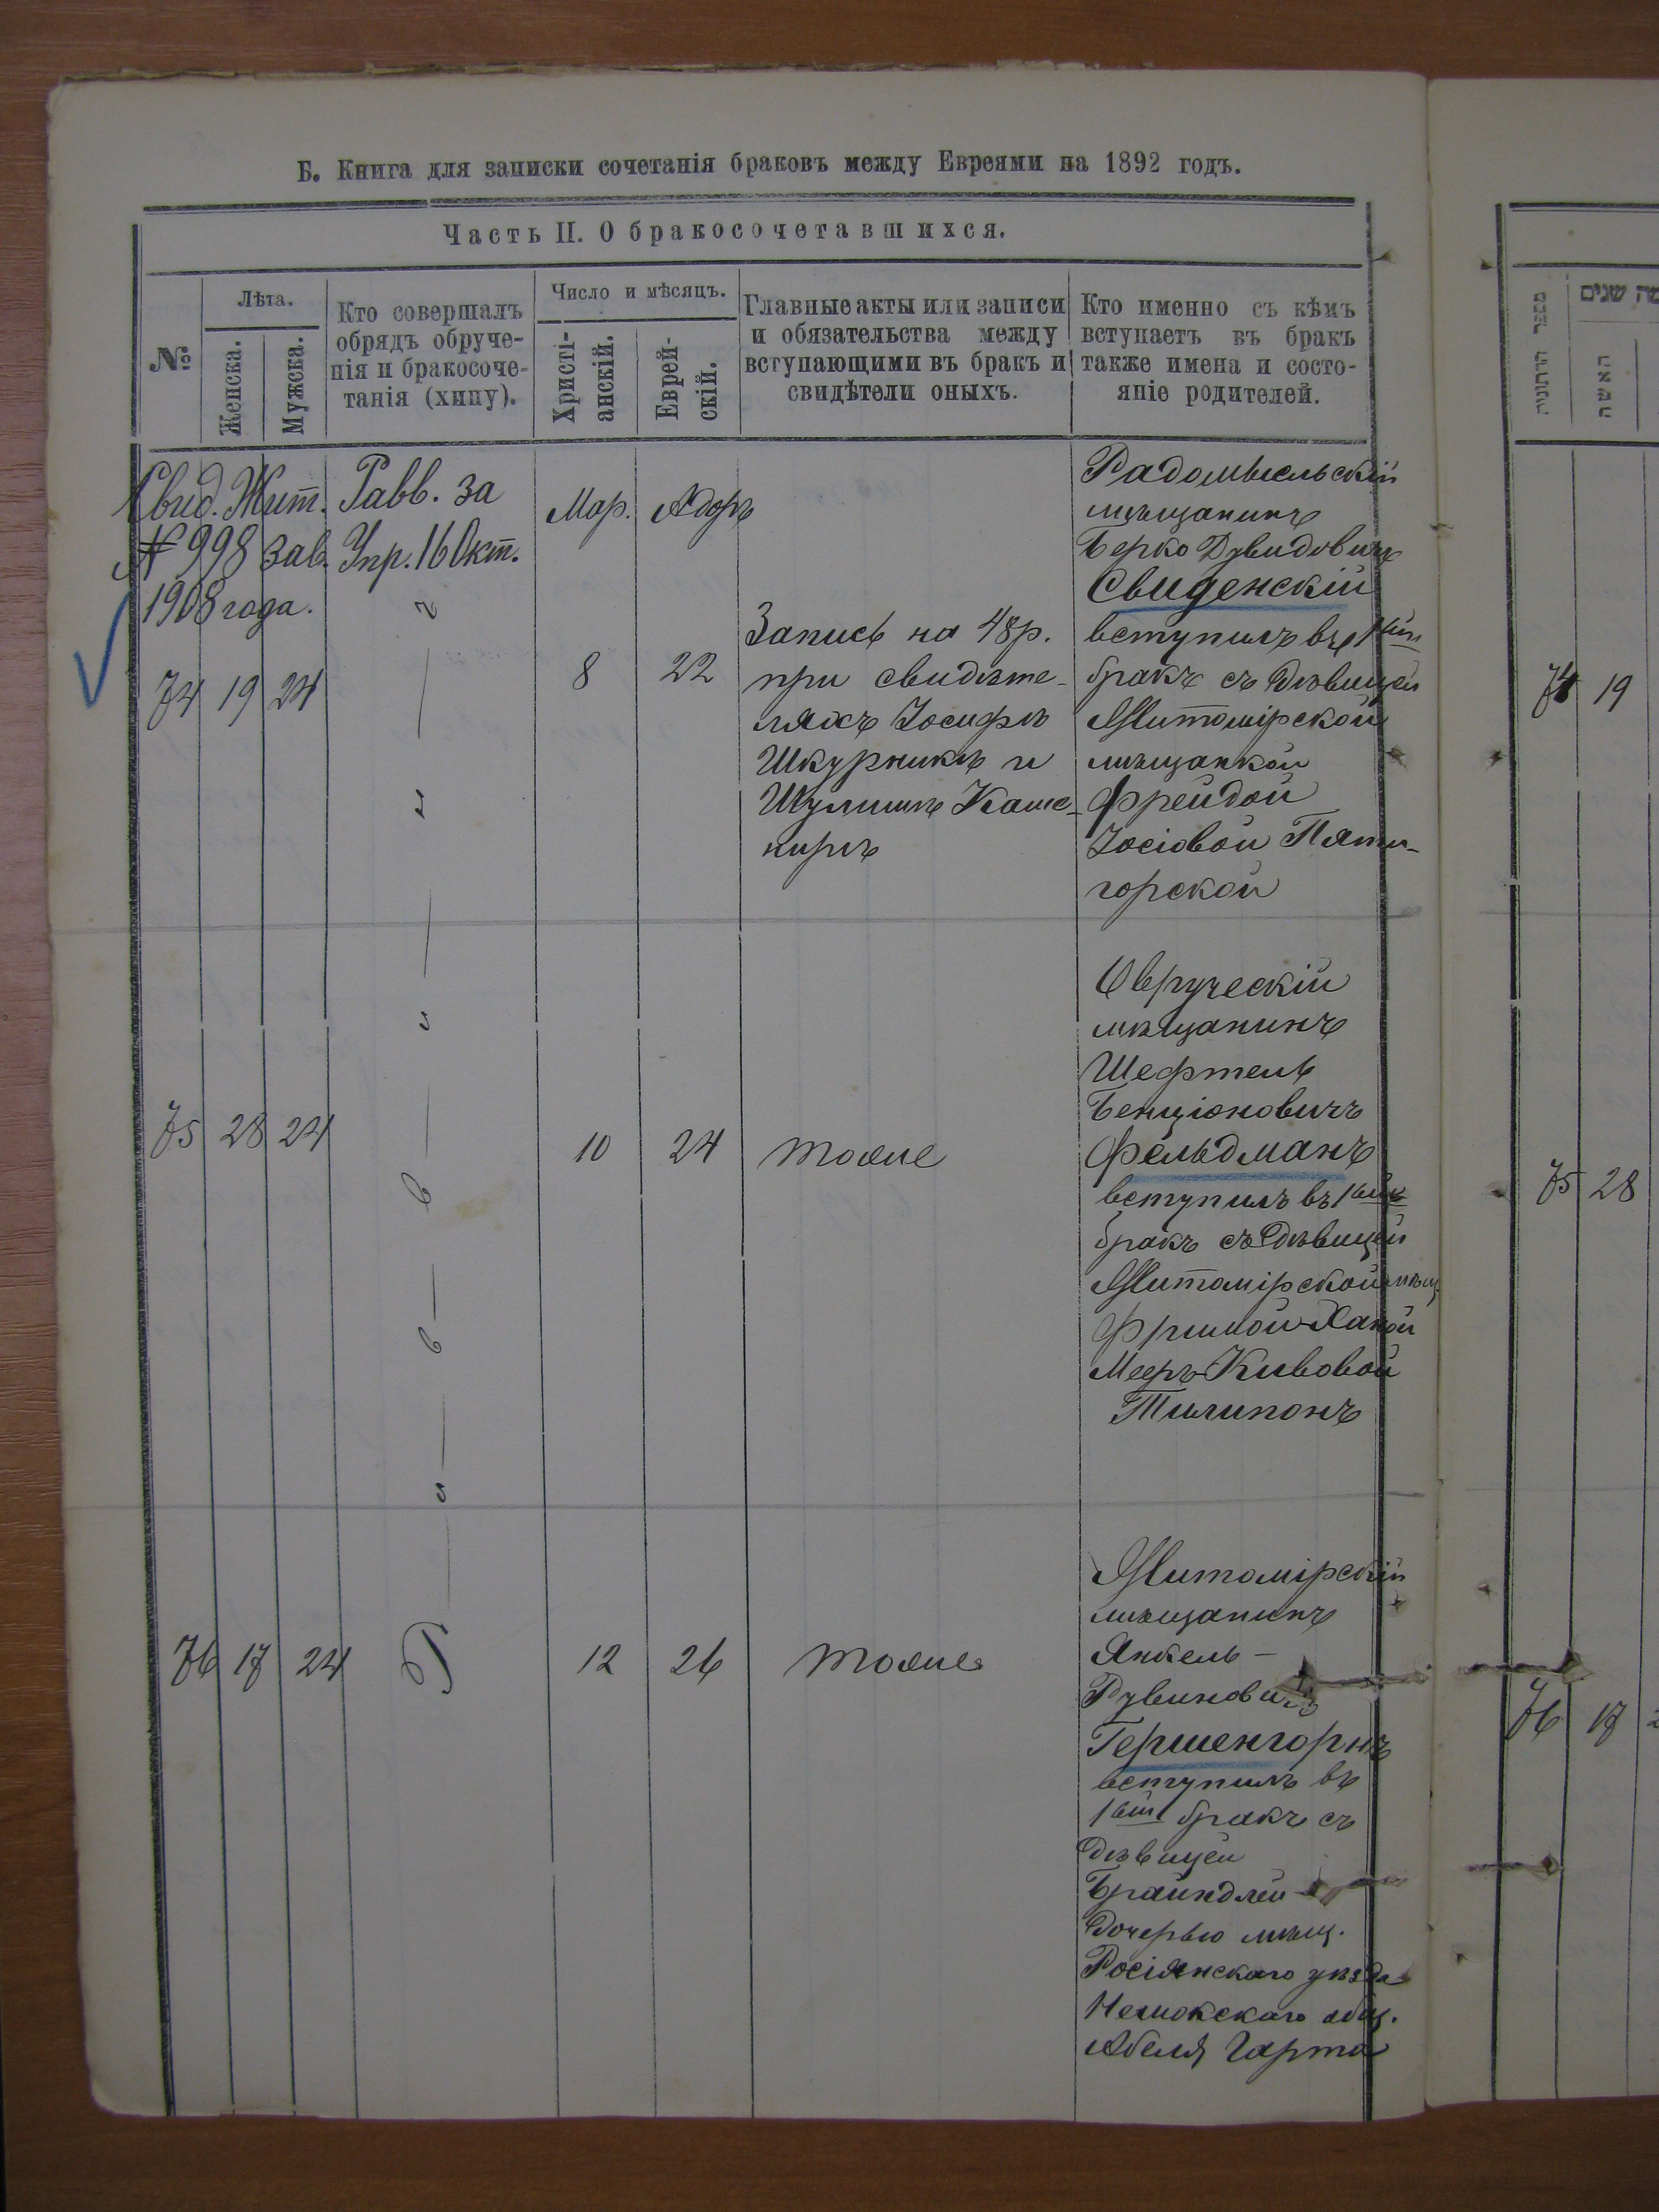 Б. Книга для записки сочетанія браковъ между Евреями на 1892 годъ.
Часть II. О бракосочетавшихся.
№
Лѣта.
Женска.
Мужска.
Кто совершалъ
обрядъ обруче-
нія и бракосоче-
танія (хипу).
Число и мѣсяцъ.
Христі-
анскій.
Еврей-
скій.
Главные акты или записи
и обязательства между
вступающими въ бракъ и
свидѣтели оныхъ.
Кто именно съ кѣмъ
вступаетъ въ бракъ
также имена и состо-
яніе родителей.
Свид. Жит. Равв. за
№ 998 зав. Упр. 16 Окт.
1908 года.
Мар. Адаръ
74 19 24
Раввинъ
8 22
Запись на 48 р.
при свидѣте-
ляхъ Іосифъ
Шкурникъ и
Шулимъ Каше-
киръ
Радомысльскій
мѣщанинъ
Берко Дувидовичъ
Свиденскій
вступилъ въ 1ый
бракъ съ дѣвицей
Житомірской
мѣщанкой
Фрейдой
Іосіовой Пяти-
горской
75 28 24
10 24
тоже
Овруческій
мѣщанинъ
Шефтель
Бенціоновичъ
Фельдманъ
вступилъ въ 1ый
бракъ съ дѣвицей
Житомірской мѣщ
Фримой Ханой
Мееръ-Кивовой
76 17 24
12 26
тоже
Житомірскій
мѣщанинъ
Янкель-
Рувиновичъ
Гершенгорнъ
вступилъ въ
1ый бракъ съ
дѣвицей
Брайндлей
дочерью мѣщ.
Росіянскаго уѣзда
общ.
Абеля Гарта
מספר החתונה
האשה
שנים
74 19
75 28
76 17 2